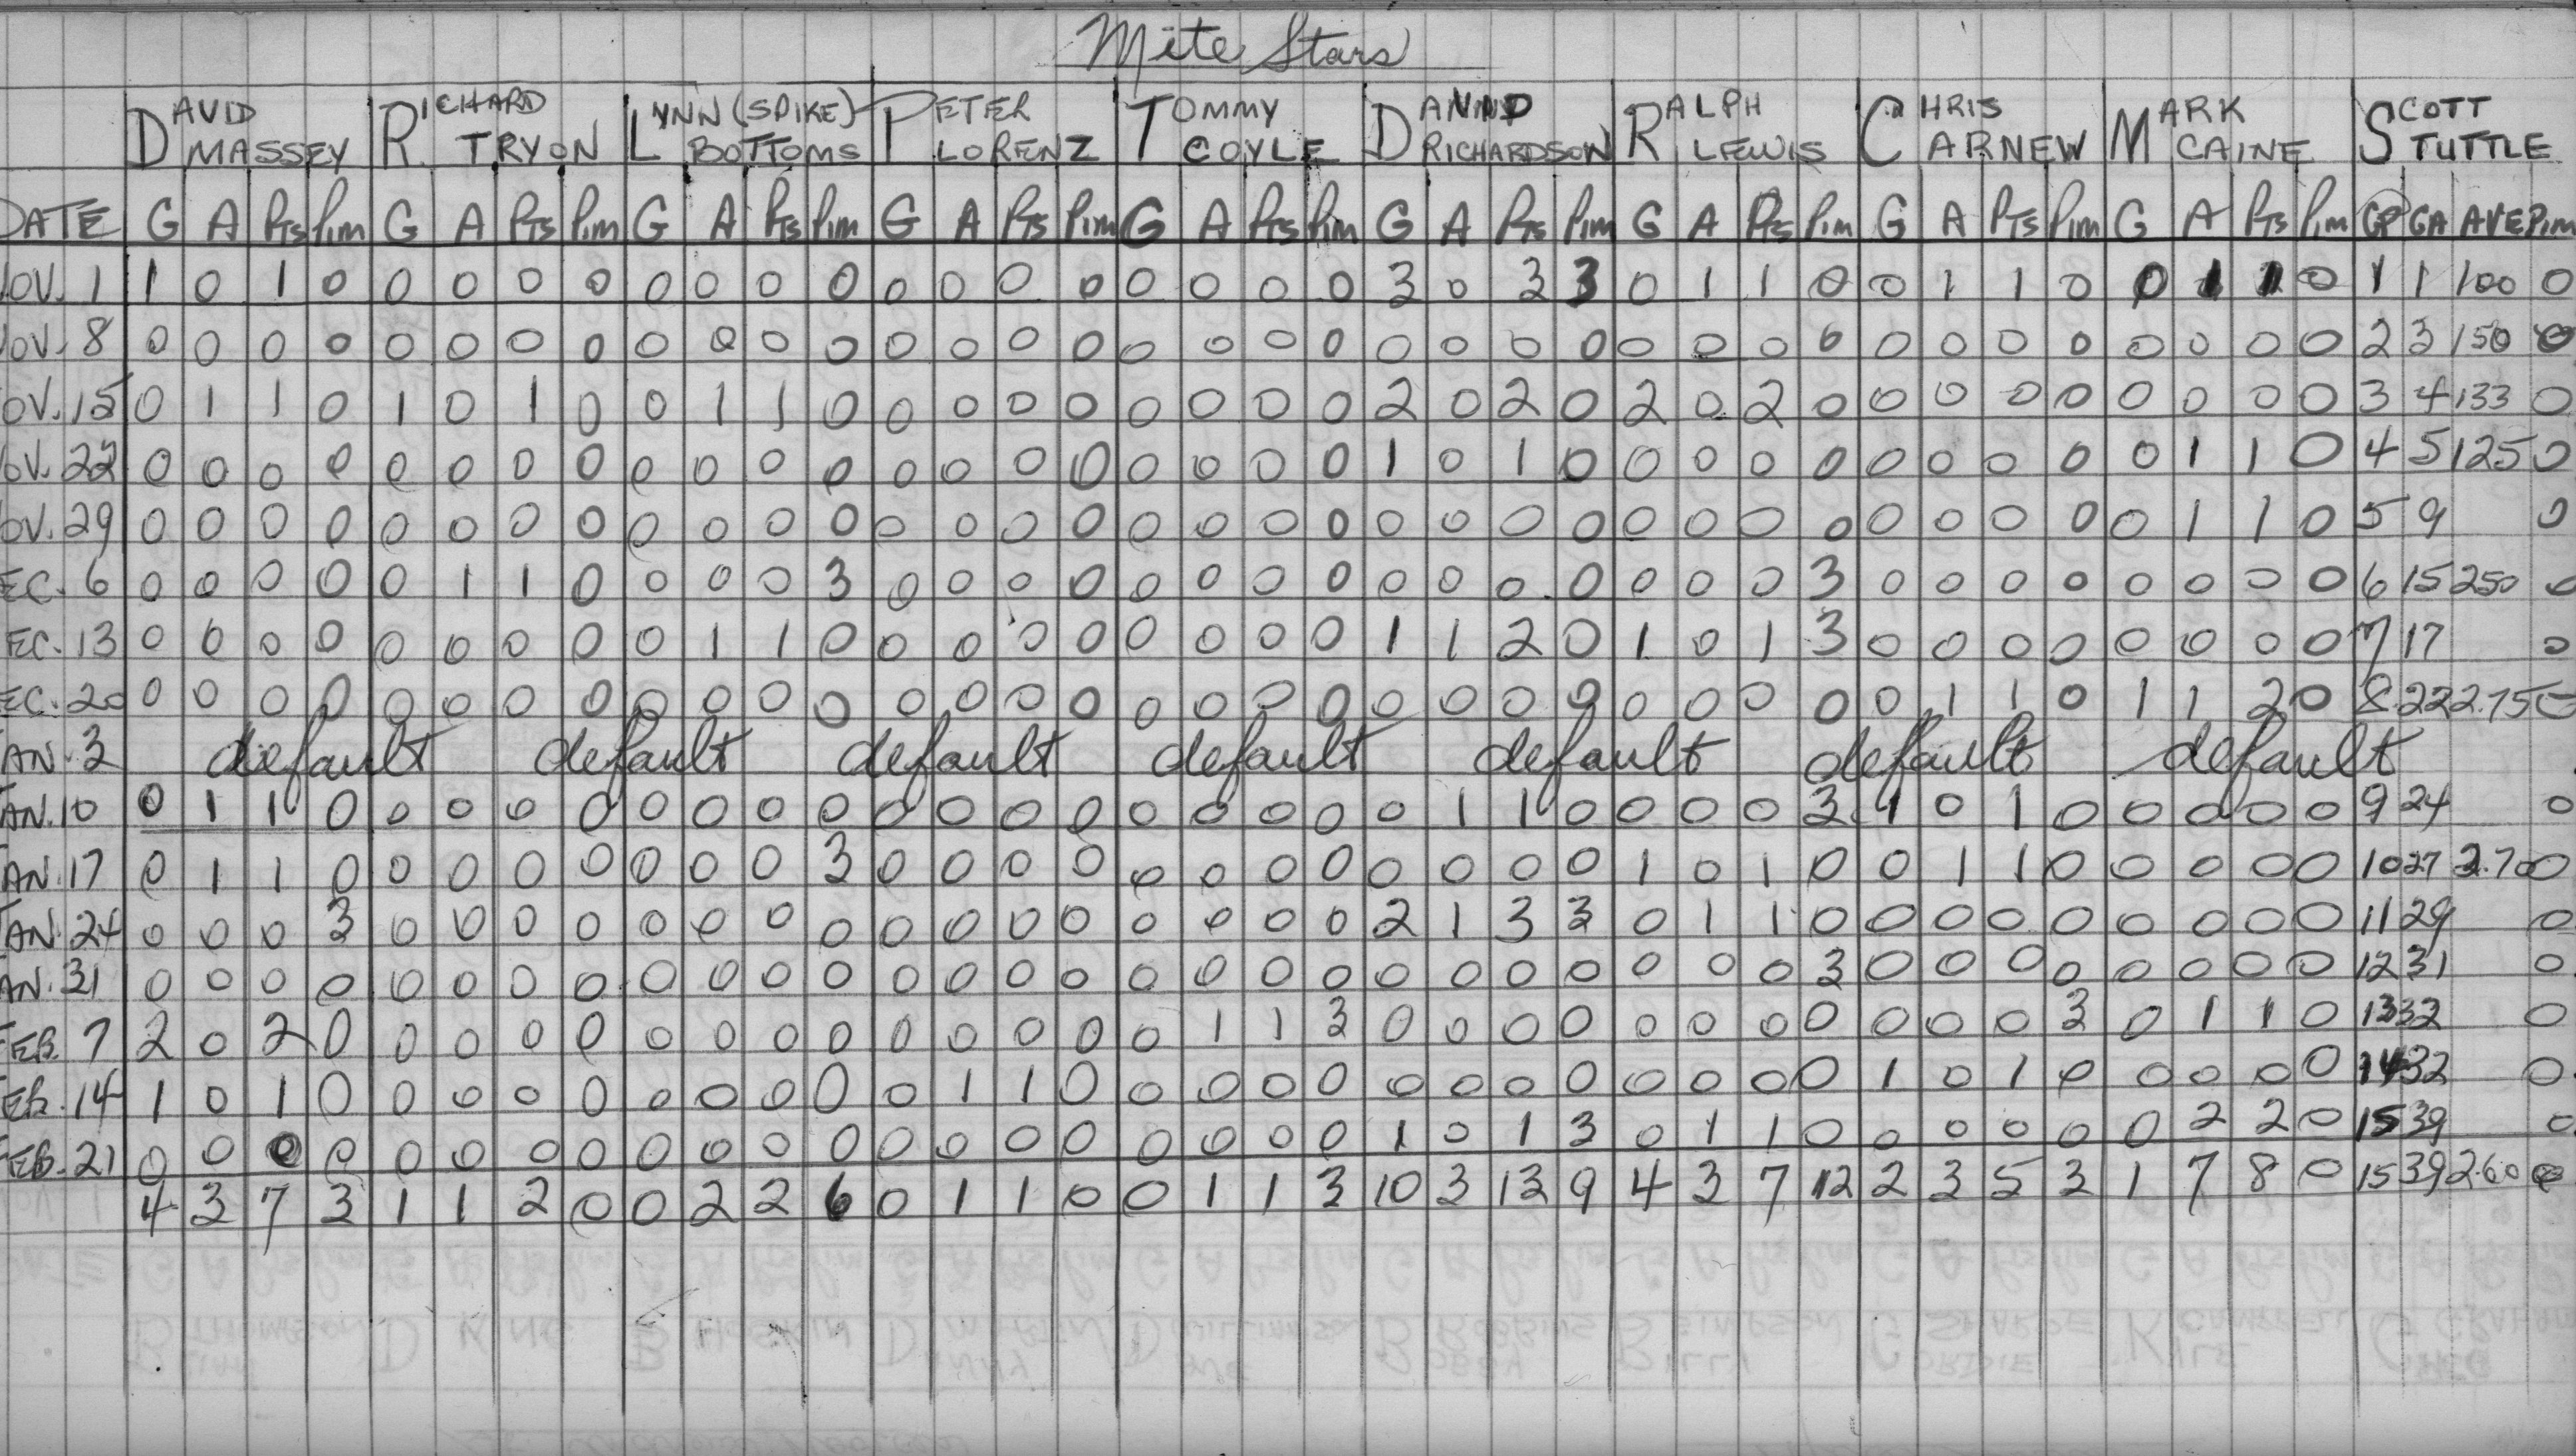 Mite Stars
DAVID MASSEY RICHARD TRYON LYNN (SPIKE) BOTTOMS PETER LORENZ TOMMY COYLE DANNY RICHARDSON RALPH LEWIS CHRIS CARNEW MARK CAINE SCOTT TUTTLE
DATE G A Pts Pim G A Pts Pim G A Pts Pim G A Pts Pim G A Pts Pim G A Pts Pim G A Pts Pim G A Pts Pim G A Pts Pim GP GA AVE Pim
OV. 1 1 0 1 0 0 0 0 0 0 0 0 0 0 0 0 0 0 0 0 0 3 0 3 3 0 1 1 0 0 1 1 0 0 1 1 0 1 1 100 0
OV. 8 0 0 0 0 0 0 0 0 0 0 0 0 0 0 0 0 0 0 0 0 0 0 0 0 0 0 0 0 0 0 0 0 0 0 0 0 2 3 150 0
OV. 15 0 1 1 0 1 0 1 0 0 1 1 0 0 0 0 0 0 0 0 0 2 0 2 0 2 0 2 0 0 0 0 0 0 0 0 0 3 4 133 0
OV. 22 0 0 0 0 0 0 0 0 0 0 0 0 0 0 0 0 0 0 0 0 1 0 1 0 0 0 0 0 0 0 0 0 0 1 1 0 4 5 125 0
OV. 29 0 0 0 0 0 0 0 0 0 0 0 0 0 0 0 0 0 0 0 0 0 0 0 0 0 0 0 0 0 0 0 0 0 1 1 0 5 9 0
EC. 6 0 0 0 0 0 1 1 0 0 0 0 3 0 0 0 0 0 0 0 0 0 0 0 0 0 0 0 3 0 0 0 0 0 0 0 0 6 15 250 0
EC. 13 0 0 0 0 0 0 0 0 0 1 1 0 0 0 0 0 0 0 0 0 1 1 2 0 1 0 1 3 0 0 0 0 0 0 0 0 7 17 0
EC. 20 0 0 0 0 0 0 0 0 0 0 0 0 0 0 0 0 0 0 0 0 0 0 0 0 0 0 0 0 0 1 1 0 1 1 2 0 8 22 2.75 0
AN. 3 default default default default default default default
AN. 10 0 1 1 0 0 0 0 0 0 0 0 0 0 0 0 0 0 0 0 0 0 1 1 0 0 0 0 3 1 0 1 0 0 0 0 0 9 24 0
AN. 17 0 1 1 0 0 0 0 0 0 0 0 3 0 0 0 0 0 0 0 0 0 0 0 0 1 0 1 0 0 1 1 0 0 0 0 0 10 27 2.70 0
AN. 24 0 0 0 3 0 0 0 0 0 0 0 0 0 0 0 0 0 0 0 0 2 1 3 3 0 1 1 0 0 0 0 0 0 0 0 0 11 29 0
AN. 31 0 0 0 0 0 0 0 0 0 0 0 0 0 0 0 0 0 0 0 0 0 0 0 0 0 0 0 3 0 0 0 0 0 0 0 0 12 31 0
FEB. 7 2 0 2 0 0 0 0 0 0 0 0 0 0 0 0 0 0 1 1 3 0 0 0 0 0 0 0 0 0 0 0 3 0 1 1 0 13 32 0
FEB. 14 1 0 1 0 0 0 0 0 0 0 0 0 0 1 1 0 0 0 0 0 0 0 0 0 0 0 0 0 1 0 1 0 0 0 0 0 14 32 0
FEB. 21 0 0 0 0 0 0 0 0 0 0 0 0 0 0 0 0 0 0 0 0 1 0 1 3 0 1 1 0 0 0 0 0 0 2 2 0 15 39 0
4 3 7 3 1 1 2 0 0 2 2 6 0 1 1 0 0 1 1 3 10 3 13 9 4 3 7 12 2 3 5 3 1 7 8 0 15 39 2.60 0